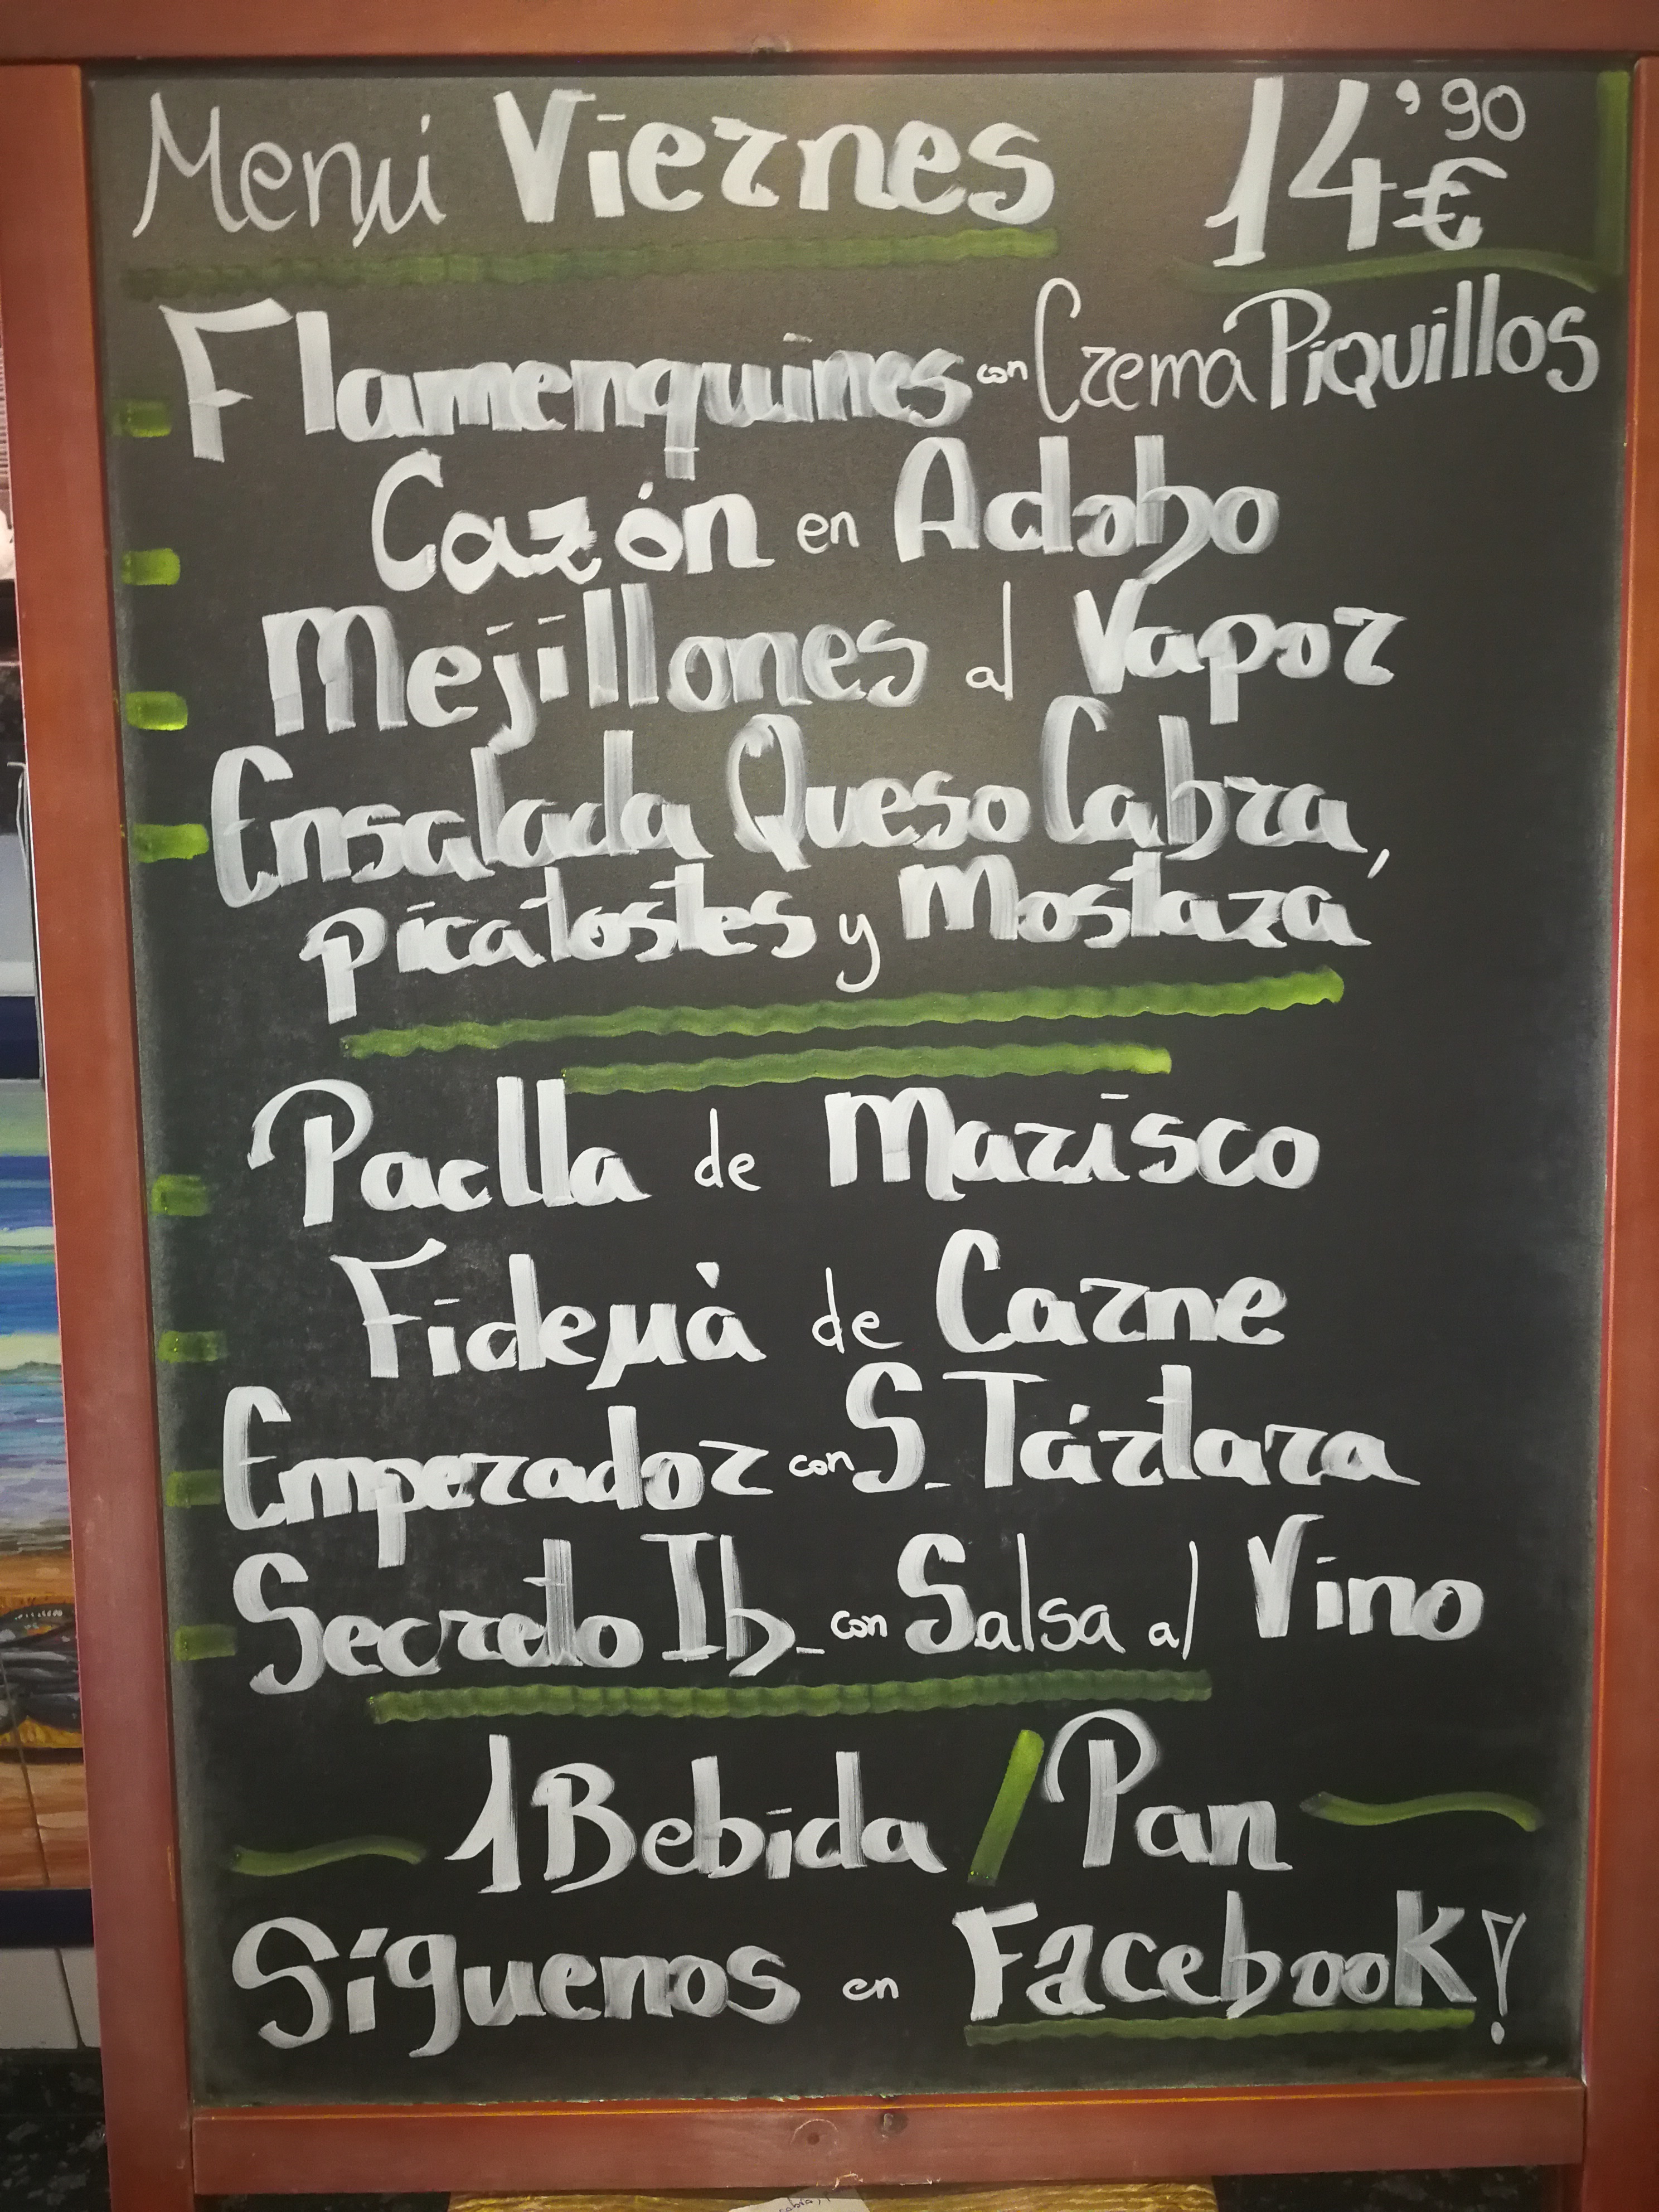 Menú Viernes 14'90 €
Flamenquines con Crema Piquillos
Cazón en Adobo
Mejillones al Vapor
Ensalada Queso Cabra,
picatostes y Mostaza
Paella de Marisco
Fideuà de Carne
Emperador con S. Tártara
Secreto Ib. con Salsa al Vino
1 Bebida / Pan
Síguenos en Facebook!